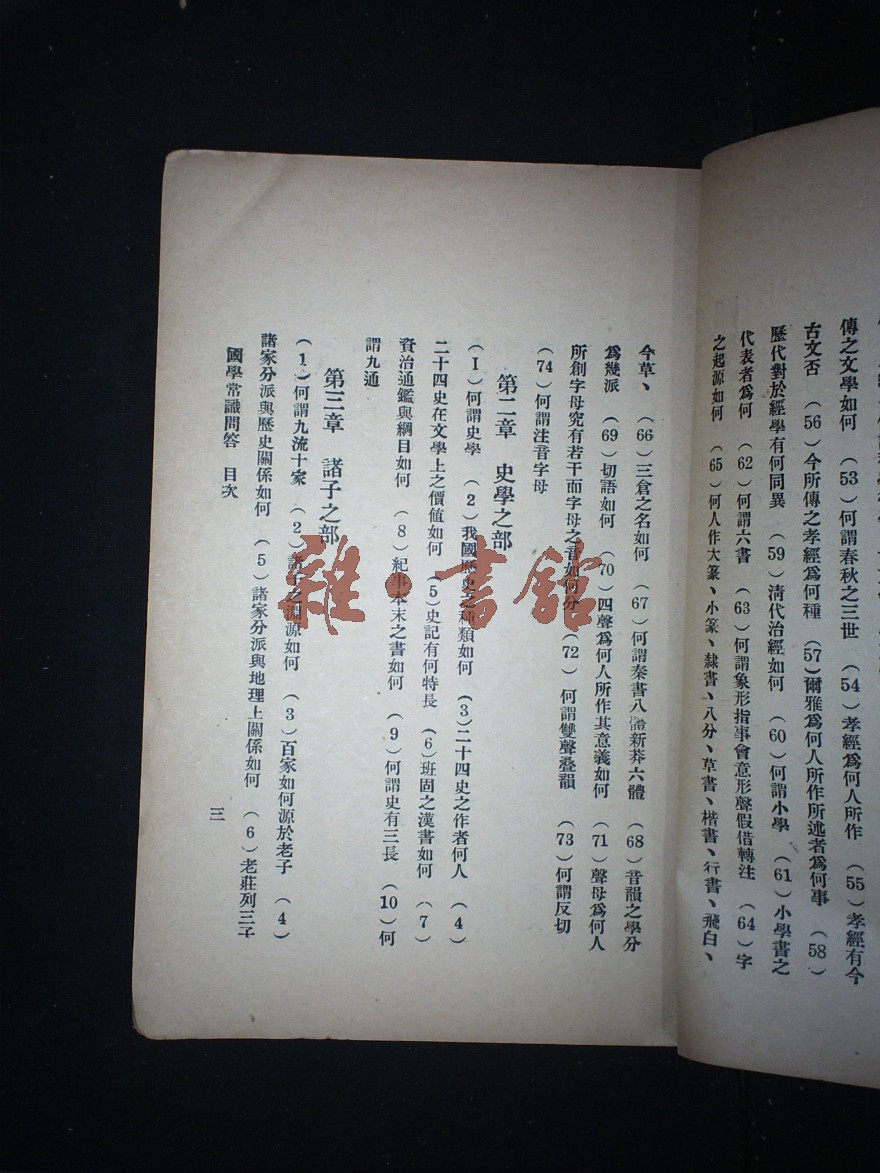 傳之文學如何　（53）何謂春秋之三世　（54）孝經爲何人所作　（55）孝經有今
古文否　（56）今所傳之孝經爲何種　（57）爾雅爲何人所作所述者爲何事　（58）
歷代對於經學有何同異　（59）清代治經如何　（60）何謂小學　（61）小學書之
代表者爲何　（62）何謂六書　（63）何謂象形指事會意形聲假借轉注　（64）字
之起源如何　（65）何人作大篆、小篆、隸書、八分、草書、楷書、行書、飛白、
今草、　（66）三倉之名如何　（67）何謂秦書八體新莽六體　（68）音韻之學分
爲幾派　（69）切語如何　（70）四聲爲何人所作其意義如何　（71）聲母爲何人
所創字母究有若干而字母之音如何分　（72）何謂雙聲叠韻　（73）何謂反切
（74）何謂注音字母
第二章　史學之部
（1）何謂史學　（2）我國歷史之種類如何　（3）二十四史之作者何人　（4）
二十四史在文學上之價值如何　（5）史記有何特長　（6）班固之漢書如何　（7）
資治通鑑與綱目如何　（8）紀事本末之書如何　（9）何謂史有三長　（10）何
謂九通
第三章　諸子之部
（1）何謂九流十家　（2）諸子之淵源如何　（3）百家如何源於老子　（4）
諸家分派與歷史關係如何　（5）諸家分派與地理上關係如何　（6）老莊列三子
國學常識問答　目次
三
雜·書館